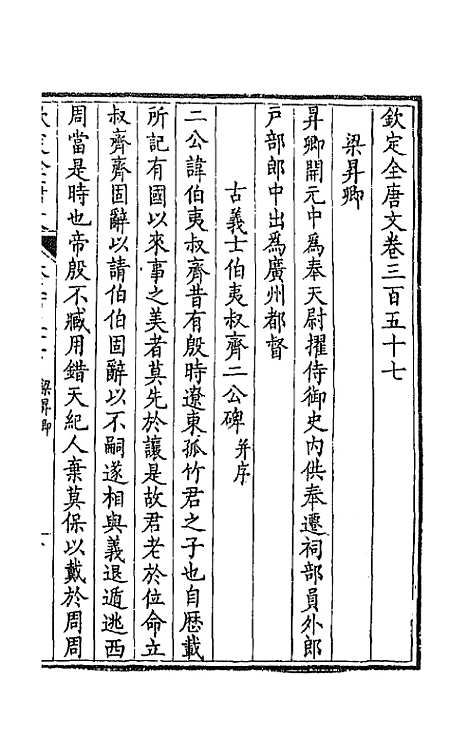 欽定全唐文卷三百五十七
梁昇卿
昇卿開元中爲奉天尉擢侍御史内供奉遷祠部員外郎
戸部郎中出爲廣州都督
古義士伯夷叔齊二公碑并序
二公諱伯夷叔齊昔有殷時遼東孤竹君之子也自歴載
所記有國以來事之美者莫先於讓是故君老於位命立
叔齊齊固辭以請伯伯固辭以不嗣遂相與義退遁逃西
周當是時也帝殷不臧用錯天紀人棄莫保以戴於周周
梁昇卿
一